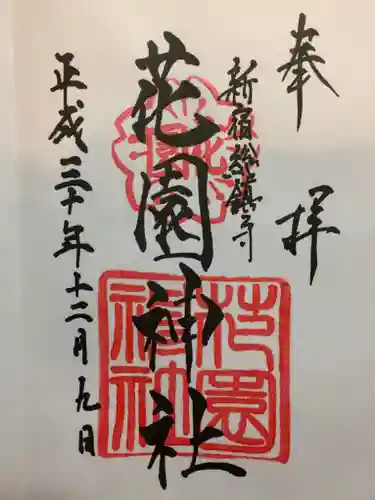 奉拝
新宿総鎮守
花園神社
平成三十年十二月九日
花園神社